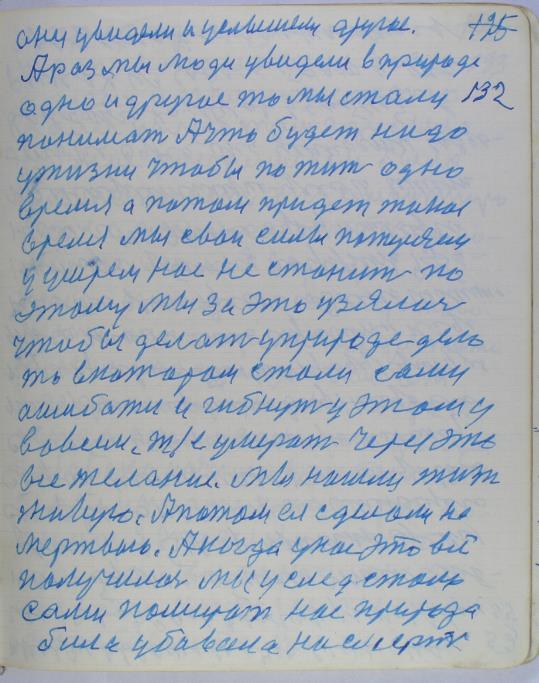 они увидели и услышели другое. 125
А раз мы люди увидели в природе
одно и другое то мы стали 132
понимат А что будет надо
ужизни чтобы пожит одно
время а потом придет такое
время мы свои силы потеряем
и умрем нас не станит по
этому мы за это узялис
чтобы делат уприроде дело
то в котором стали сами
ошибатся и гибнут у этому
вовсем. т/е умерат через это
все желание. Мы нашли жизн
живую. А потом ея сделали на
мертвою. А когда унас это всё
получилос мы услед стали
сами помират нас природа
била убавала насмерт